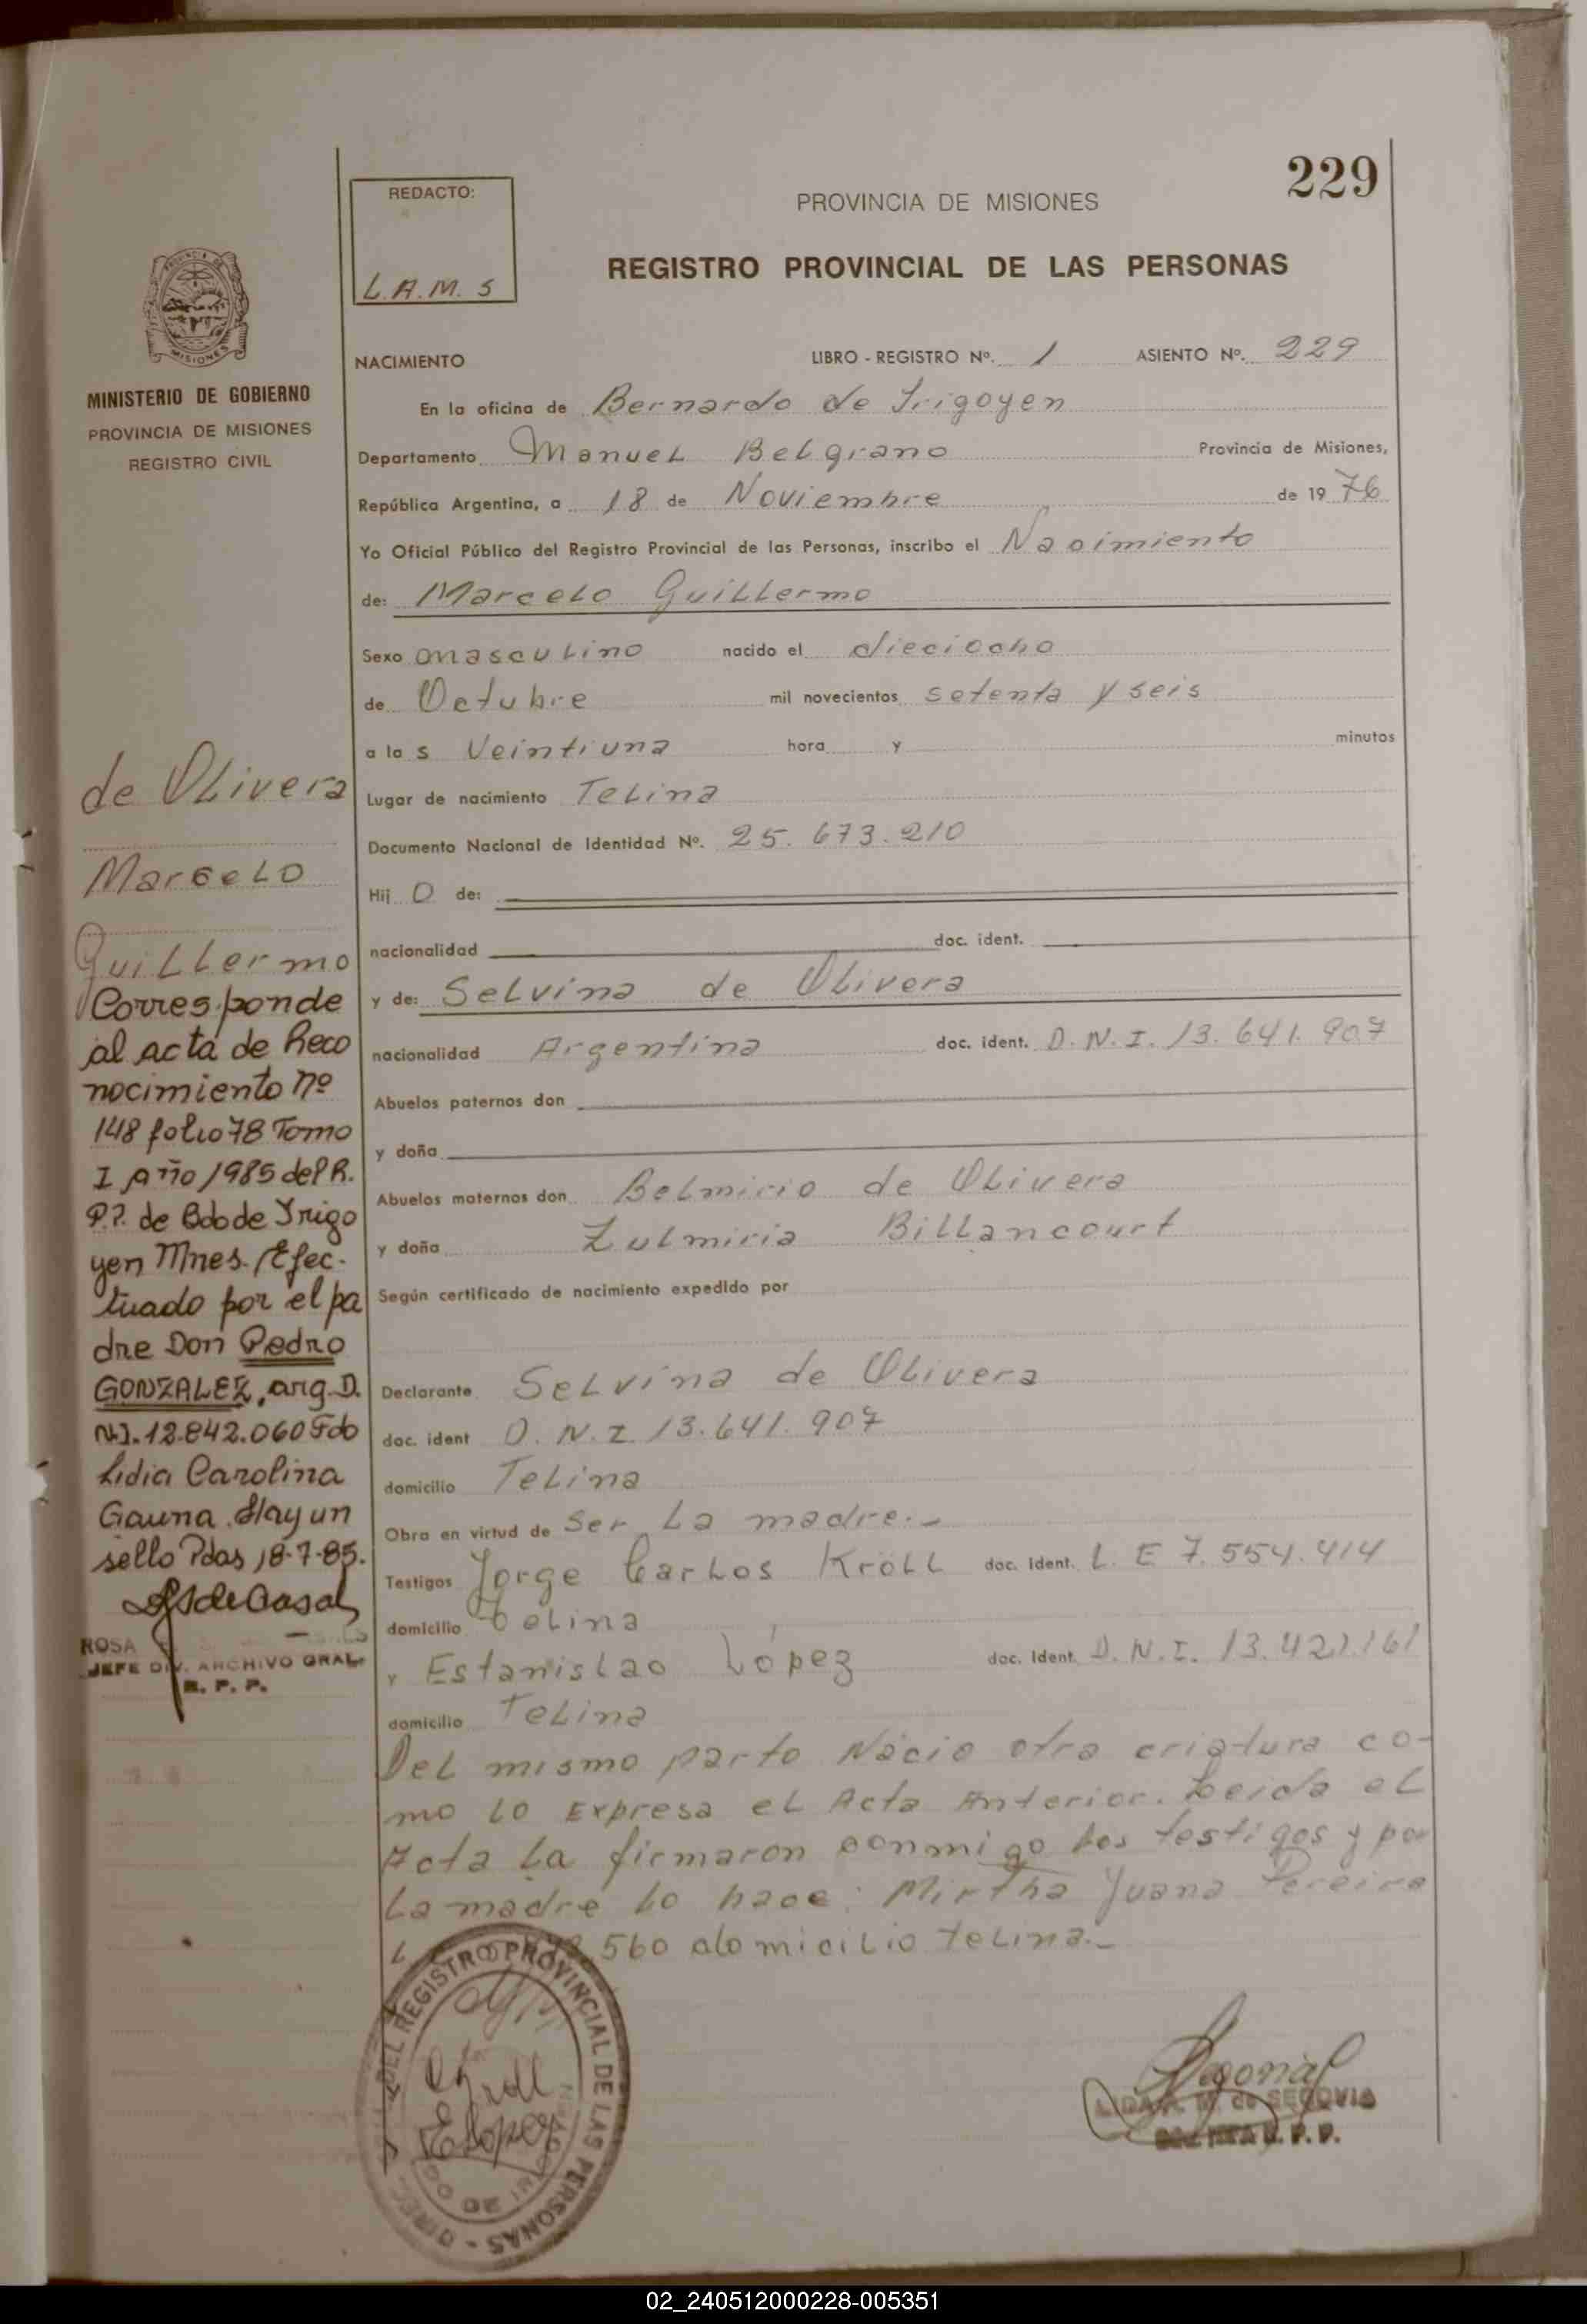 229
REDACTO:
L.A.M.S
PROVINCIA DE MISIONES
REGISTRO PROVINCIAL DE LAS PERSONAS
MISIONES
MINISTERIO DE GOBIERNO
PROVINCIA DE MISIONES
REGISTRO CIVIL
NACIMIENTO LIBRO - REGISTRO Nº. 1 ASIENTO Nº. 229
En la oficina de Bernardo de Irigoyen
Departamento Manuel Belgrano Provincia de Misiones,
República Argentina, a 18 de Noviembre de 1976
Yo Oficial Público del Registro Provincial de las Personas, inscribo el Nacimiento
de: Marcelo Guillermo
Sexo masculino nacido el dieciocho
de Octubre mil novecientos setenta y seis
a las Veintiuna hora y minutos
Lugar de nacimiento Telina
Documento Nacional de Identidad Nº. 25.673.210
Hijo de:
nacionalidad doc. ident.
y de: Selvina de Olivera
nacionalidad Argentina doc. ident. D.N.I. 13.641.907
Abuelos paternos don
y doña
Abuelos maternos don Belmirio de Olivera
y doña Zulmiria Billancourt
Según certificado de nacimiento expedido por
Declarante Selvina de Olivera
doc. ident D.N.I 13.641.907
domicilio Telina
Obra en virtud de ser La madre.-
Testigos Jorge Carlos Kröll doc. ident. L.E 7.554.414
domicilio Telina
y Estanislao López doc. Ident. D.N.I. 13.421.161
domicilio Telina
Del mismo parto Nacio otra criatura co-
mo lo Expresa el Acta Anterior. Leida el
Acta la firmaron conmigo los testigos y por
la madre lo hace: Mirtha Juana Pereira
560 domicilio telina.-
de Olivera
Marcelo
Guillermo
Corresponde
al acta de Reco
nocimiento nº
148 folio 78 Tomo
I Año 1985 del R.
P.P. de Bdo de Yrigo
yen Mnes. Efec-
tuado por el pa
dre Don Pedro
GONZALEZ, arg. D.
N.I. 12.842.060 Fdo
Lidia Carolina
Gauna. Hay un
sello Pdas 18-7-85.
ROSA
JEFE DIV. ARCHIVO GRAL.
R. P. P.
DEL REGISTRO PROVINCIAL DE LAS PERSONAS
Kröll
ELopez
SEGOVIA
R. P. P.
02_240512000228-005351